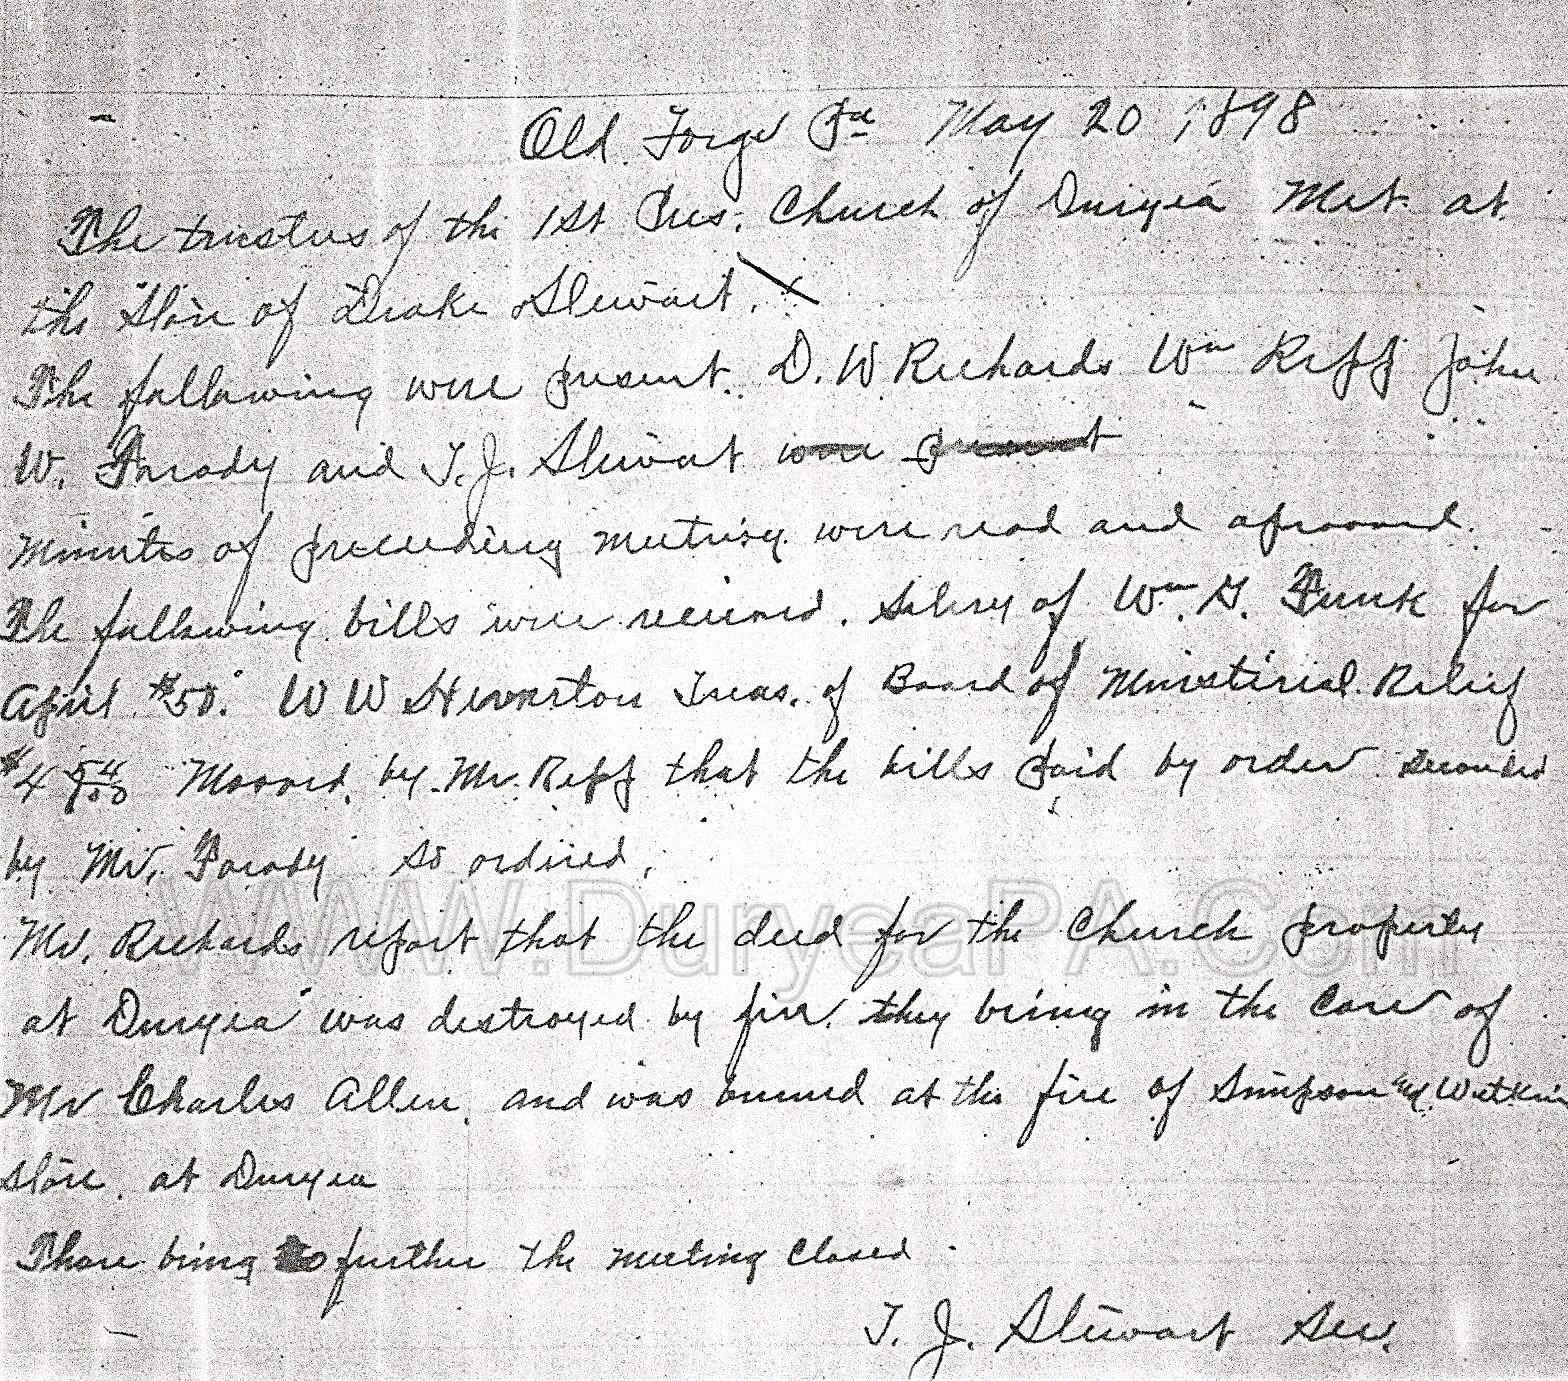 Old Forge Pa May 20, 1898
The trustees of the 1st Pres. Church of Duryea Met. at
the Store of Drake Stewart.
The following were present. D. W Richards Wm Repp John
W. Parady and T. J. Stewart were present
Minutes of preceeding meeting were read and approved.
The following bills were received. Salery of Wm. G. Funk for
April $50. W W Treas. of Board of Ministerial Relief
$4 54/100 Mooved by Mr. Repp that the bills paid by order seconded
by Mr. Parady so ordired.
Mr. Richards report that the deed for the Church property
at Duryea was destroyed by fire. they being in the Care of
Mr Charles Allen. and was burned at the fire of Simpson and Watkins
store. at Duryea
Thare being no further the meeting Closed.
T. J. Stewart Sec.
WWW.DuryeaPA.Com